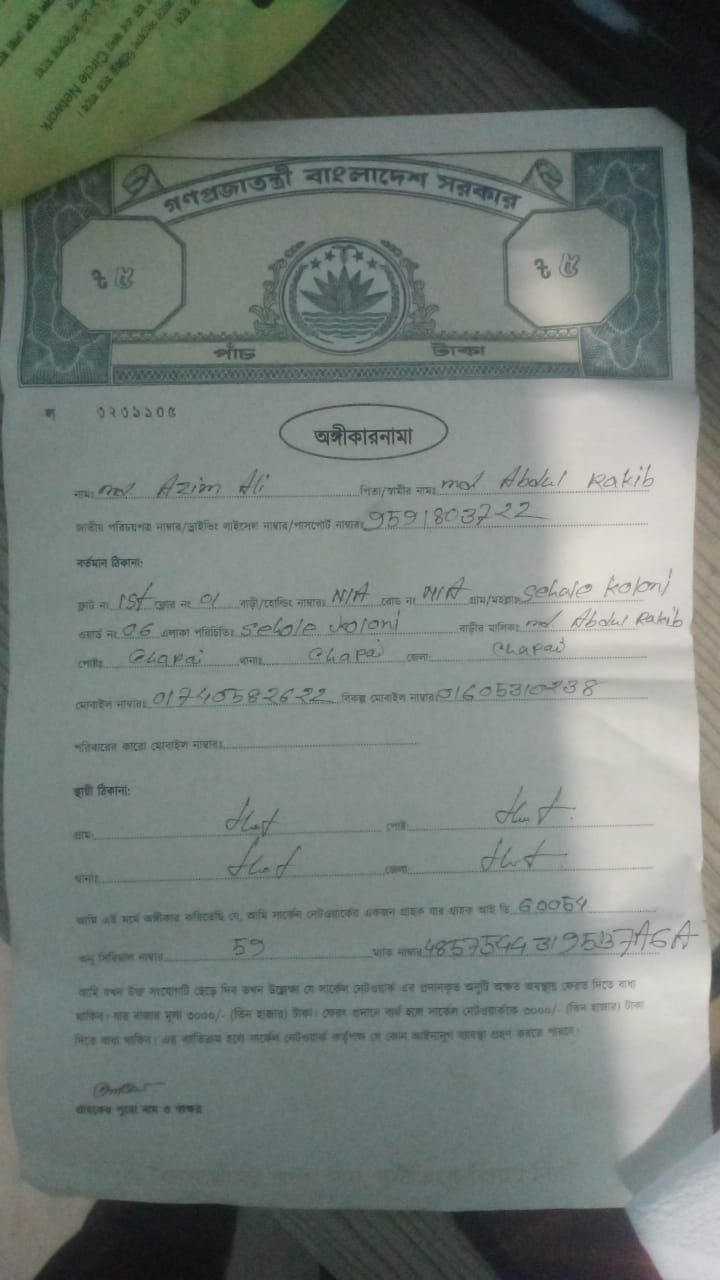 Circle Network
গণপ্রজাতন্ত্রী বাংলাদেশ সরকার
৳ ৫ ৳ ৫
পাঁচ টাকা
অঙ্গীকারনামা
নামঃ md Azim Ali পিতা/স্বামীর নামঃ md Abdul Rakib
জাতীয় পরিচয়পত্র নাম্বার/ড্রাইভিং লাইসেন্স নাম্বার/পাসপোর্ট নাম্বারঃ 9591803722
বর্তমান ঠিকানা:
ফ্লাট নং 1st ফ্লোর নং 01 বাড়ী/হোল্ডিং নাম্বারঃ N/A রোড নং N/A গ্রাম/মহল্লাঃ Sehale koloni
ওয়ার্ড নং 06 এলাকা পরিচিতিঃ Sehole koloni বাড়ীর মালিকঃ md Abdul Rakib
পোষ্টঃ Chapai থানাঃ Chapai জেলাঃ Chapai
মোবাইল নাম্বারঃ 01740582622 বিকল্প মোবাইল নাম্বারঃ 01605310238
পরিবারের কারো মোবাইল নাম্বারঃ
স্থায়ী ঠিকানা:
গ্রামঃ পোষ্টঃ
থানাঃ জেলাঃ
আমি এই মর্মে অঙ্গীকার করিতেছি যে, আমি সার্কেল নেটওয়ার্কের একজন গ্রাহক যার গ্রাহক আই ডি 60054
অনু সিরিয়াল নাম্বার 59 ম্যাক নাম্বার
আমি যখন উক্ত সংযোগটি ছেড়ে দিব তখন উল্লেখ্য যে সার্কেল নেটওয়ার্ক এর প্রদানকৃত অনুটি অক্ষত অবস্থায় ফেরত দিতে বাধ্য
থাকিব। যার বাজার মূল্য ৩০০০/- (তিন হাজার) টাকা। ফেরত প্রদানে ব্যর্থ হলে সার্কেল নেটওয়ার্ককে ৩০০০/- (তিন হাজার) টাকা
দিতে বাধ্য থাকিব। এর ব্যতিক্রম হলে সার্কেল নেটওয়ার্ক কর্তৃপক্ষ যে কোন আইনানুগ ব্যবস্থা গ্রহন করতে পারবে।
গ্রাহকের পুরো নাম ও স্বাক্ষর